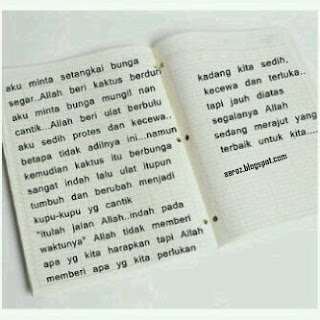 aku minta setangkai bunga
segar..Allah beri kaktus berduri
aku minta bunga mungil nan
cantik...Allah beri ulat berbulu
aku sedih protes dan kecewa..
betapa tidak adilnya ini...namun
kemudian kaktus itu berbunga
sangat indah lalu ulat itupun
tumbuh dan berubah menjadi
kupu-kupu yg cantik
"itulah jalan Allah..indah pada
waktunya" Allah tidak memberi
apa yg kita harapkan tapi Allah
memberi apa yg kita perlukan
kadang kita sedih,
kecewa dan terluka..
tapi jauh diatas
segalanya Allah
sedang merajut yang
terbaik untuk kita....
aaroz.blogspot.com